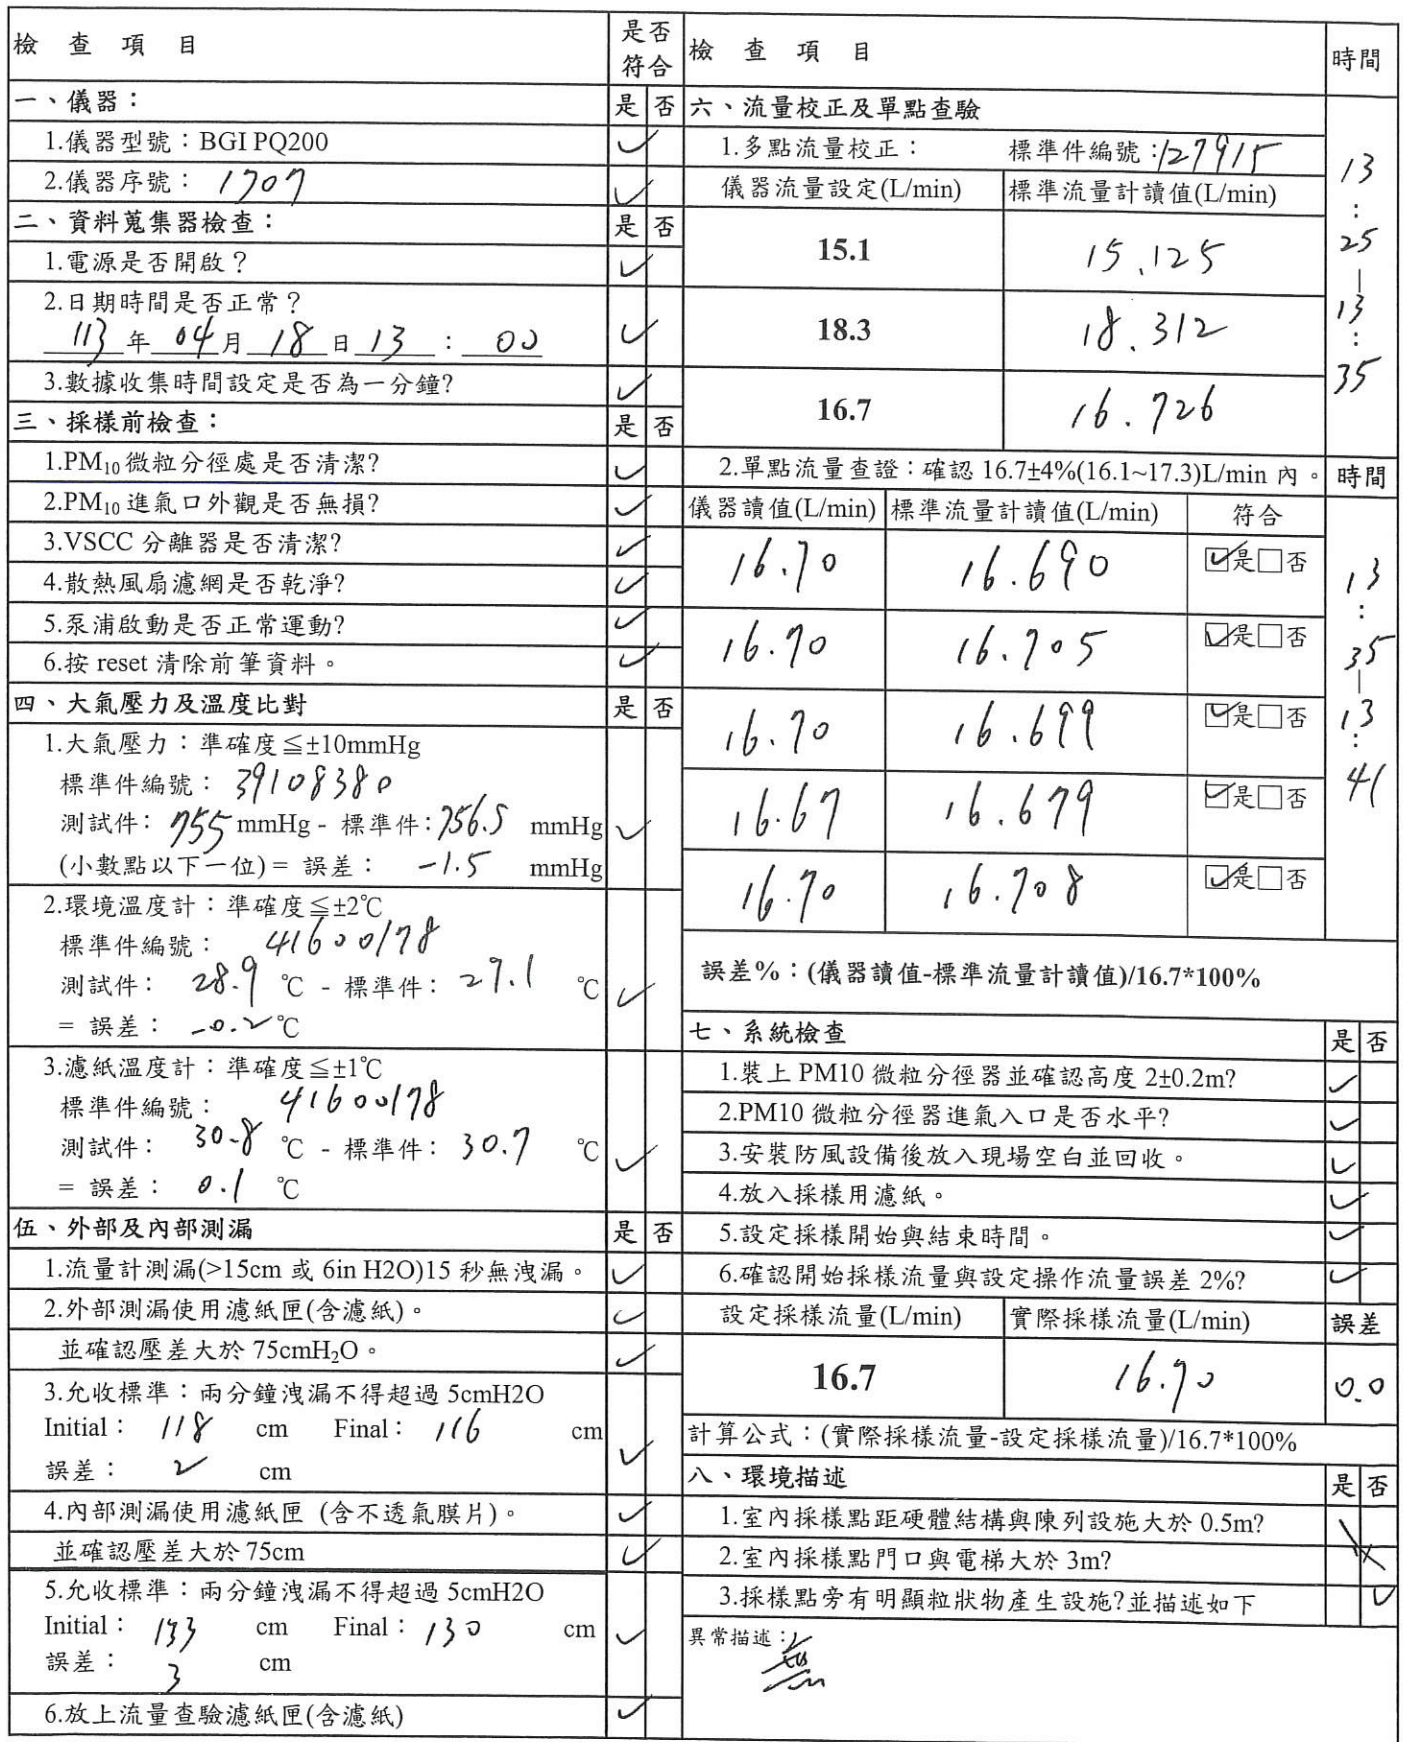 檢 查 項 目
是否符合
一、儀器：
是 否
1.儀器型號：BGI PQ200
2.儀器序號：1707
二、資料蒐集器檢查：
是 否
1.電源是否開啟？
2.日期時間是否正常？
113 年 04 月 18 日 13 : 00
3.數據收集時間設定是否為一分鐘?
三、採樣前檢查：
是 否
1.PM10 微粒分徑處是否清潔?
2.PM10 進氣口外觀是否無損?
3.VSCC 分離器是否清潔?
4.散熱風扇濾網是否乾淨?
5.泵浦啟動是否正常運動?
6.按 reset 清除前筆資料。
四、大氣壓力及溫度比對
是 否
1.大氣壓力：準確度≦±10mmHg
標準件編號：39108380
測試件：755 mmHg - 標準件：756.5 mmHg
(小數點以下一位) = 誤差： -1.5 mmHg
2.環境溫度計：準確度≦±2℃
標準件編號： 41600178
測試件： 28.9 ℃ - 標準件： 29.1 ℃
= 誤差： -0.2 ℃
3.濾紙溫度計：準確度≦±1℃
標準件編號： 41600178
測試件： 30.8 ℃ - 標準件： 30.7 ℃
= 誤差： 0.1 ℃
伍、外部及內部測漏
是 否
1.流量計測漏(>15cm 或 6in H2O)15 秒無洩漏。
2.外部測漏使用濾紙匣(含濾紙)。
並確認壓差大於 75cmH2O。
3.允收標準：兩分鐘洩漏不得超過 5cmH2O
Initial： 118 cm Final： 116 cm
誤差： 2 cm
4.內部測漏使用濾紙匣 (含不透氣膜片)。
並確認壓差大於 75cm
5.允收標準：兩分鐘洩漏不得超過 5cmH2O
Initial： 133 cm Final： 130 cm
誤差： 3 cm
6.放上流量查驗濾紙匣(含濾紙)
檢 查 項 目
時間
六、流量校正及單點查驗
1.多點流量校正： 標準件編號：127915
儀器流量設定(L/min) 標準流量計讀值(L/min)
15.1 15.125
18.3 18.312
16.7 16.726
13:25—13:35
2.單點流量查證：確認 16.7±4%(16.1~17.3)L/min 內。
時間
儀器讀值(L/min) 標準流量計讀值(L/min) 符合
16.70 16.690 ☑是☐否
16.70 16.705 ☑是☐否
16.70 16.699 ☑是☐否
16.67 16.679 ☑是☐否
16.70 16.708 ☑是☐否
13:35—13:41
誤差%：(儀器讀值-標準流量計讀值)/16.7*100%
七、系統檢查
是 否
1.裝上 PM10 微粒分徑器並確認高度 2±0.2m?
2.PM10 微粒分徑器進氣入口是否水平?
3.安裝防風設備後放入現場空白並回收。
4.放入採樣用濾紙。
5.設定採樣開始與結束時間。
6.確認開始採樣流量與設定操作流量誤差 2%?
設定採樣流量(L/min) 實際採樣流量(L/min) 誤差
16.7 16.70 0.0
計算公式：(實際採樣流量-設定採樣流量)/16.7*100%
八、環境描述
是 否
1.室內採樣點距硬體結構與陳列設施大於 0.5m?
2.室內採樣點門口與電梯大於 3m?
3.採樣點旁有明顯粒狀物產生設施?並描述如下
異常描述：無